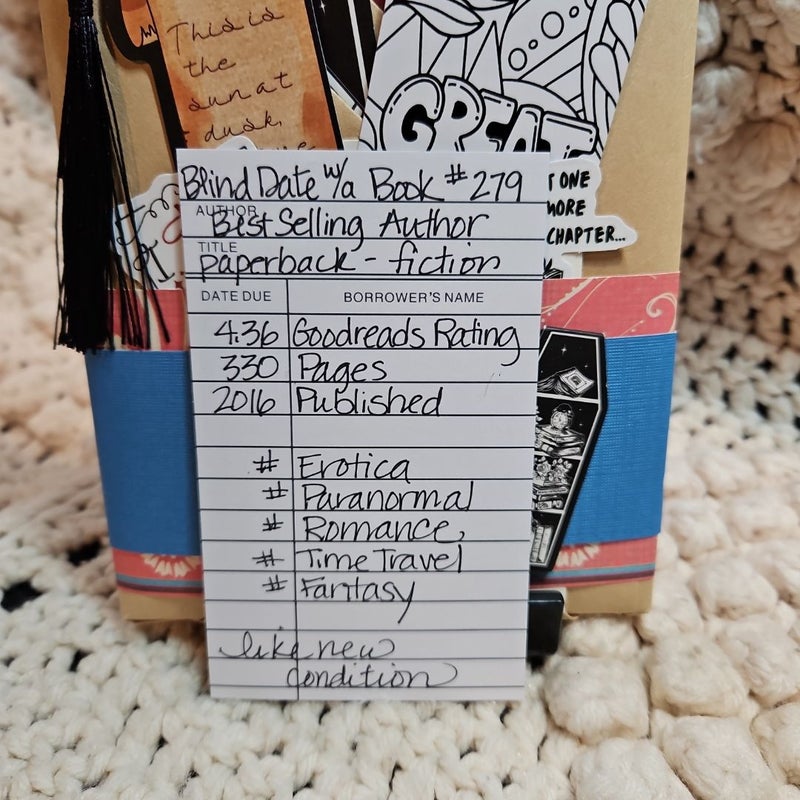 This is
the
sun at
dusk,
GREAT
Blind Date w/a Book #279
AUTHOR
Best Selling Author
TITLE
paperback - fiction
DATE DUE BORROWER'S NAME
4.36 Goodreads Rating
330 Pages
2016 Published
# Erotica
# Paranormal
# Romance,
# Time Travel
# Fantasy
like new
condition
ONE
MORE
CHAPTER...